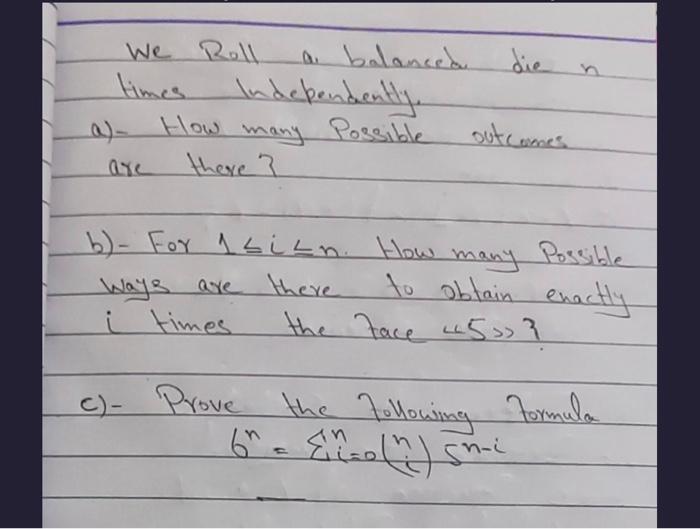 We Roll a balanced die n
times Independently.
a)- How many Possible outcomes
are there?
b)- For 1 ≤ i ≤ n. How many Possible
ways are there to obtain enactly
i times the face «5»?
c)- Prove the following formula
6ⁿ = Σⁿi=0 (n i) 5ⁿ⁻ⁱ